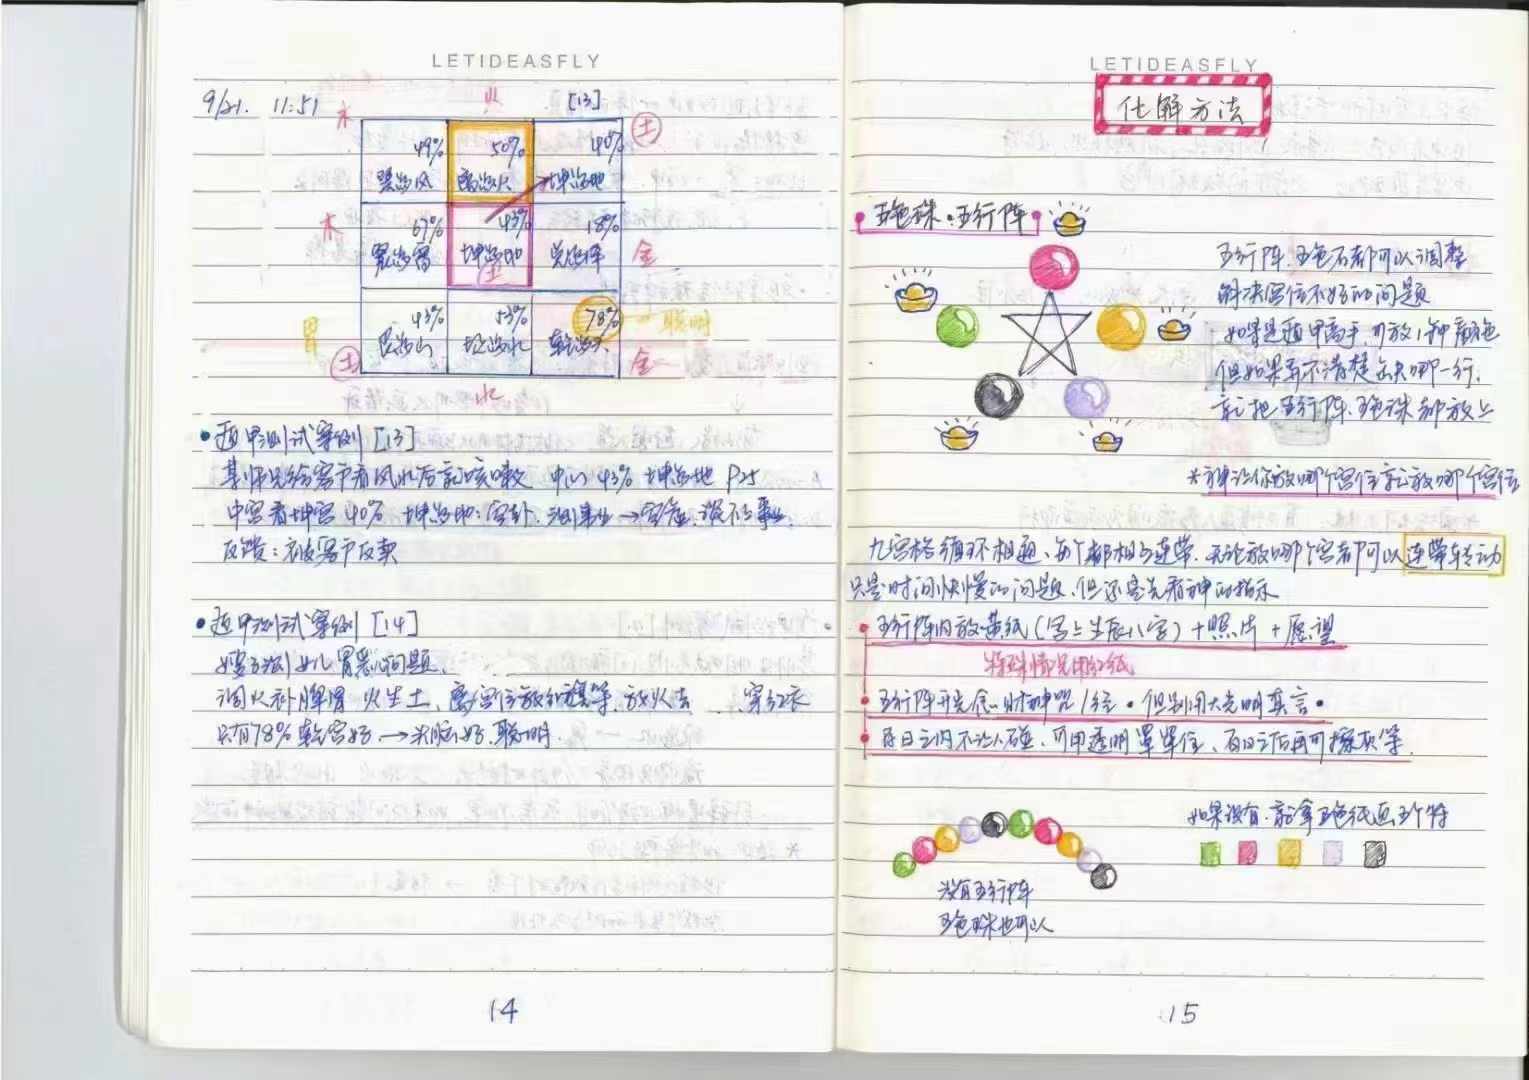 LETIDEASFLY
9/21. 11:51
火
[13]
木
土
49% 50% 40%
巽为风 离为火 坤为地
木
67% 43% 18%
震为雷 坤为地 兑为泽
金
土
胃
43% 53% 78%
艮为山 坎为水 乾为天
聪明
土
金
水
遁甲测试案例 [13]
某师兄给客户看风水后就咳嗽 中心 43% 坤为地 P25
中宫看坤宫 40% 坤为地
反馈:被客户反卖
遁甲测试案例 [14]
测女儿胃患问题
调火补脾胃 火生土, 离宫位放红旗等, 放火去, 穿红衣
只有78% 乾宫好 → 头脑好, 聪明
14
LETIDEASFLY
化解方法
五色珠·五行阵
五行阵、五色石都可以调整
解决宫位不好的问题
如果是遁甲高手, 可放1种颜色
但如果弄不清楚缺哪一行,
就把五行阵、五色珠都放上
*神让你放哪个宫位就放哪个宫位
九宫格循环相通、每个都相互连带. 无论放哪个宫都可以连带转动
只是时间快慢的问题, 但还是先看神的指示
五行阵内放黄纸(写上生辰八字)+照片+愿望
特殊情况用红纸
五行阵开光念财神咒1经·但别用大光明真言·
百日之内不让人碰, 可用透明罩罩住, 百日之后再可擦灰等.
如果没有, 就拿五色纸画五个符
没有五行阵
五色珠也可以
15